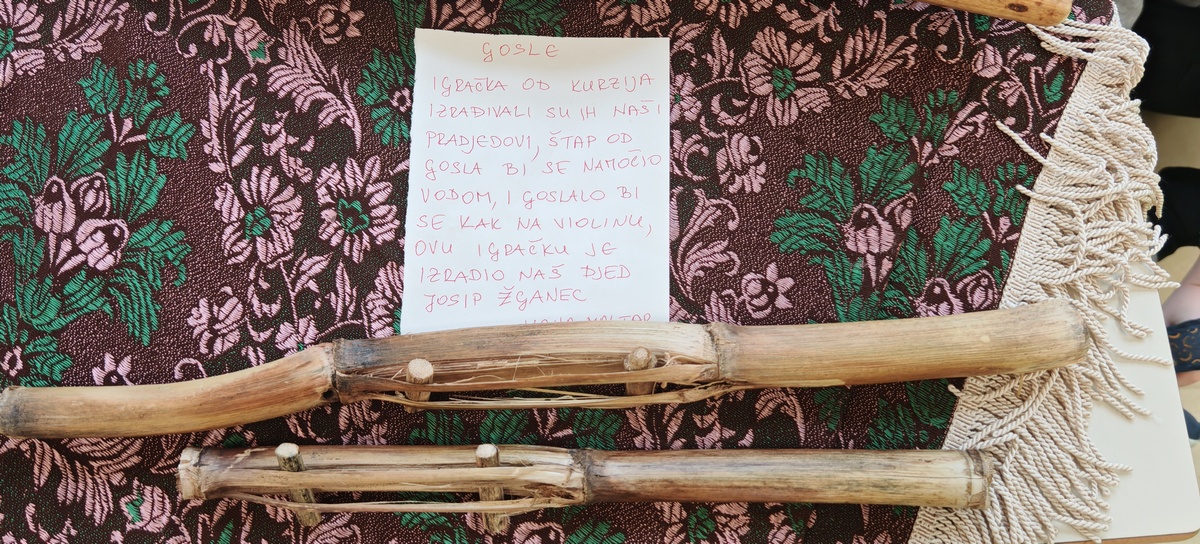 GOSLE
IGRAČKA OD KURZIJA
IZRAĐIVALI SU IH NAŠI
PRADJEDOVI, ŠTAP OD
GOSLA BI SE NAMOČIO
VODOM, I GOSLALO BI
SE KAK NA VIOLINU,
OVU IGRAČKU JE
IZRADIO NAŠ DJED
JOSIP ŽGANEC